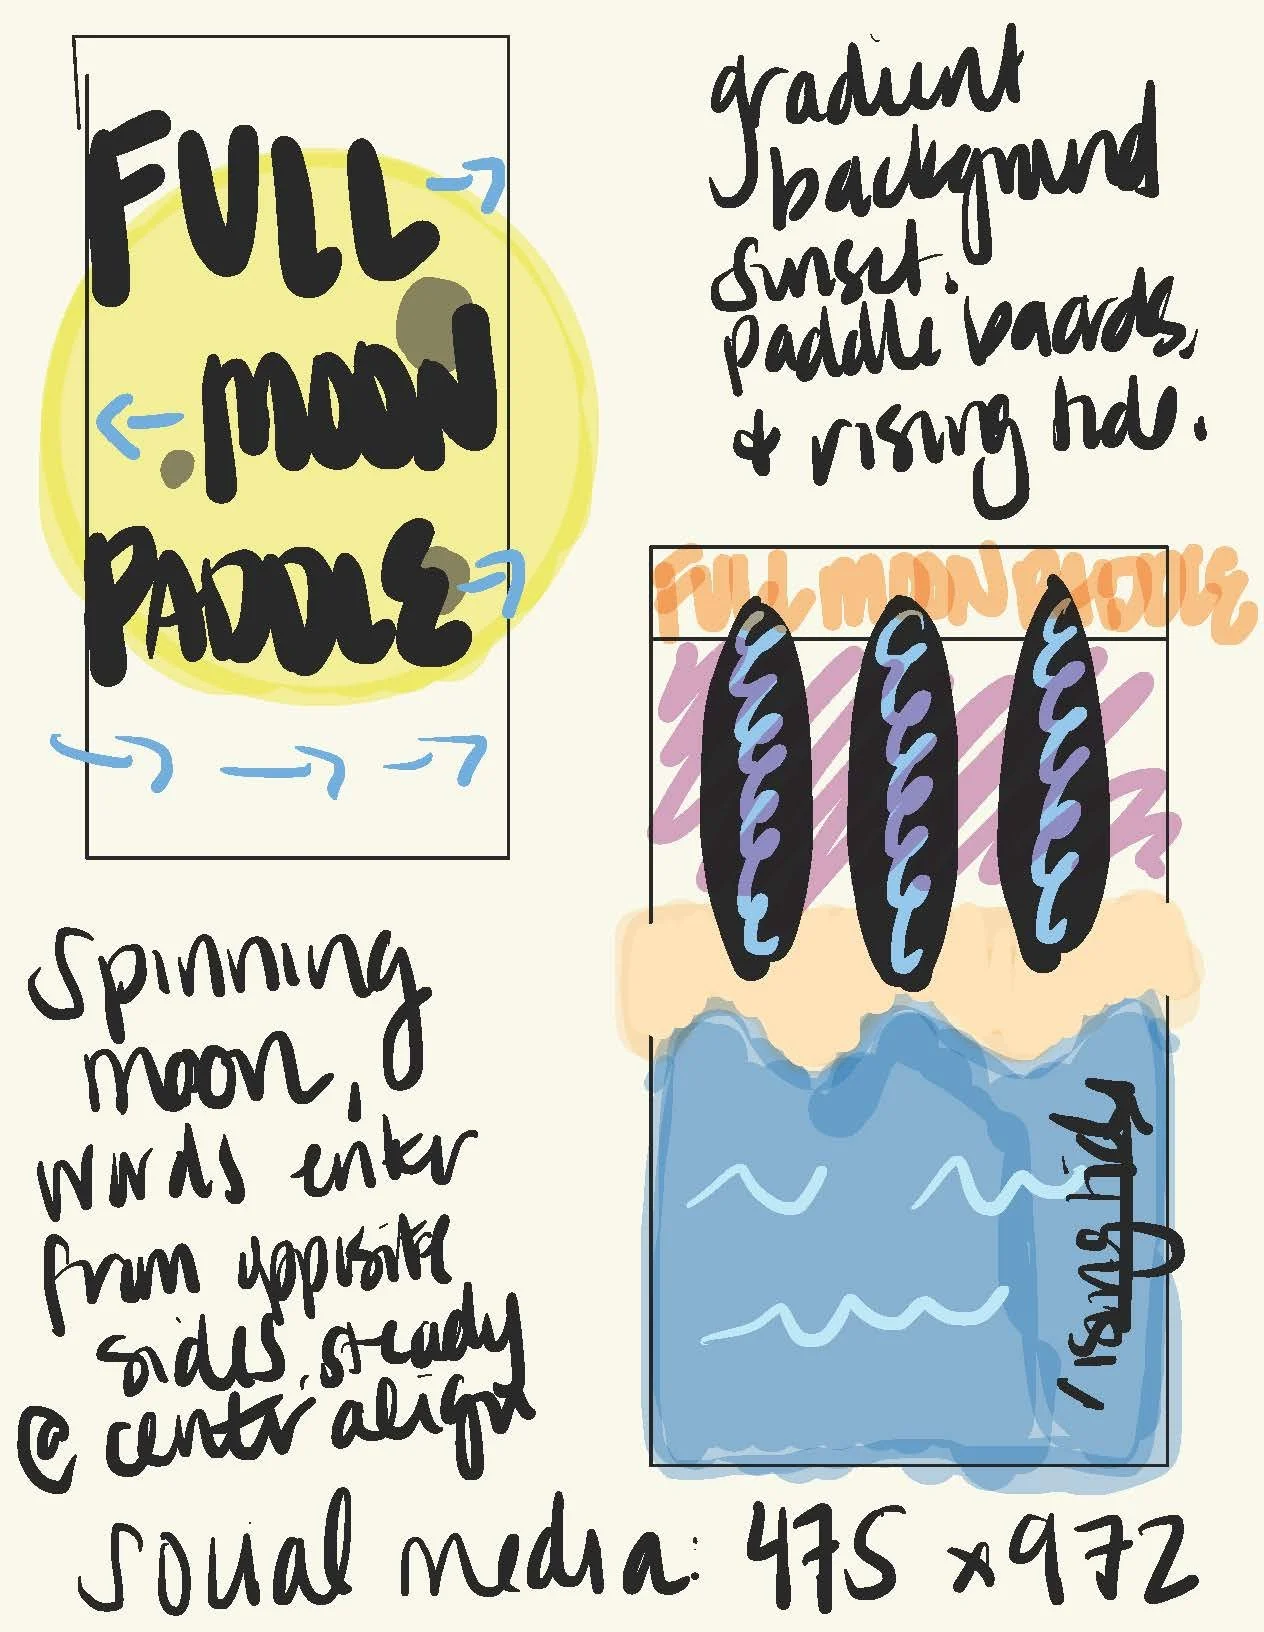 FULL
MOON
PADDLE
gradient
background
sunset.
paddle boards,
& rising tide.
FULL MOON PADDLE
rising tide
Spinning
moon,
words enter
from opposite
sides, steady
@ center align
social media: 475 x 972